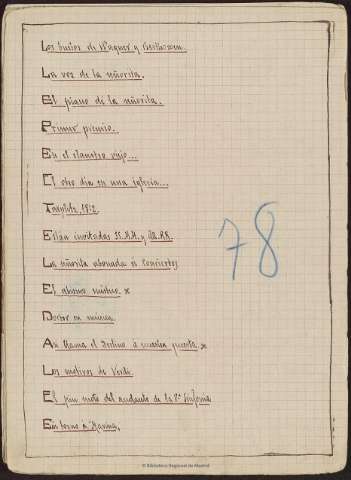 Los bustos de Wagner y Beethoven.
La voz de la señorita.
El piano de la señorita.
Primer premio.
En el rlamstro viejo...
El otro día en una iglesia...
Están invitados SS.MM. y AA.RR.
La señorita abonada a conciertos
El abono mismo. x
Doctor en música
Así llama el Destino a nuestra puerta. x
78
Los motivos de Verdi
El pim moto del andante de la 5ª Sinfonía
En torno a Ravina.
© Biblioteca Regional de Madrid